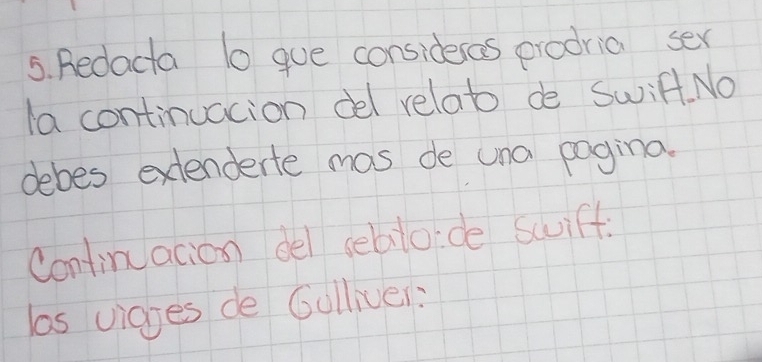 5. Redacta lo que consideras prodria ser
la continuacion del relato de Swift. No
debes extenderte mas de una pagina.
Continuacion del relato: de Swift:
los viages de Gulliver: